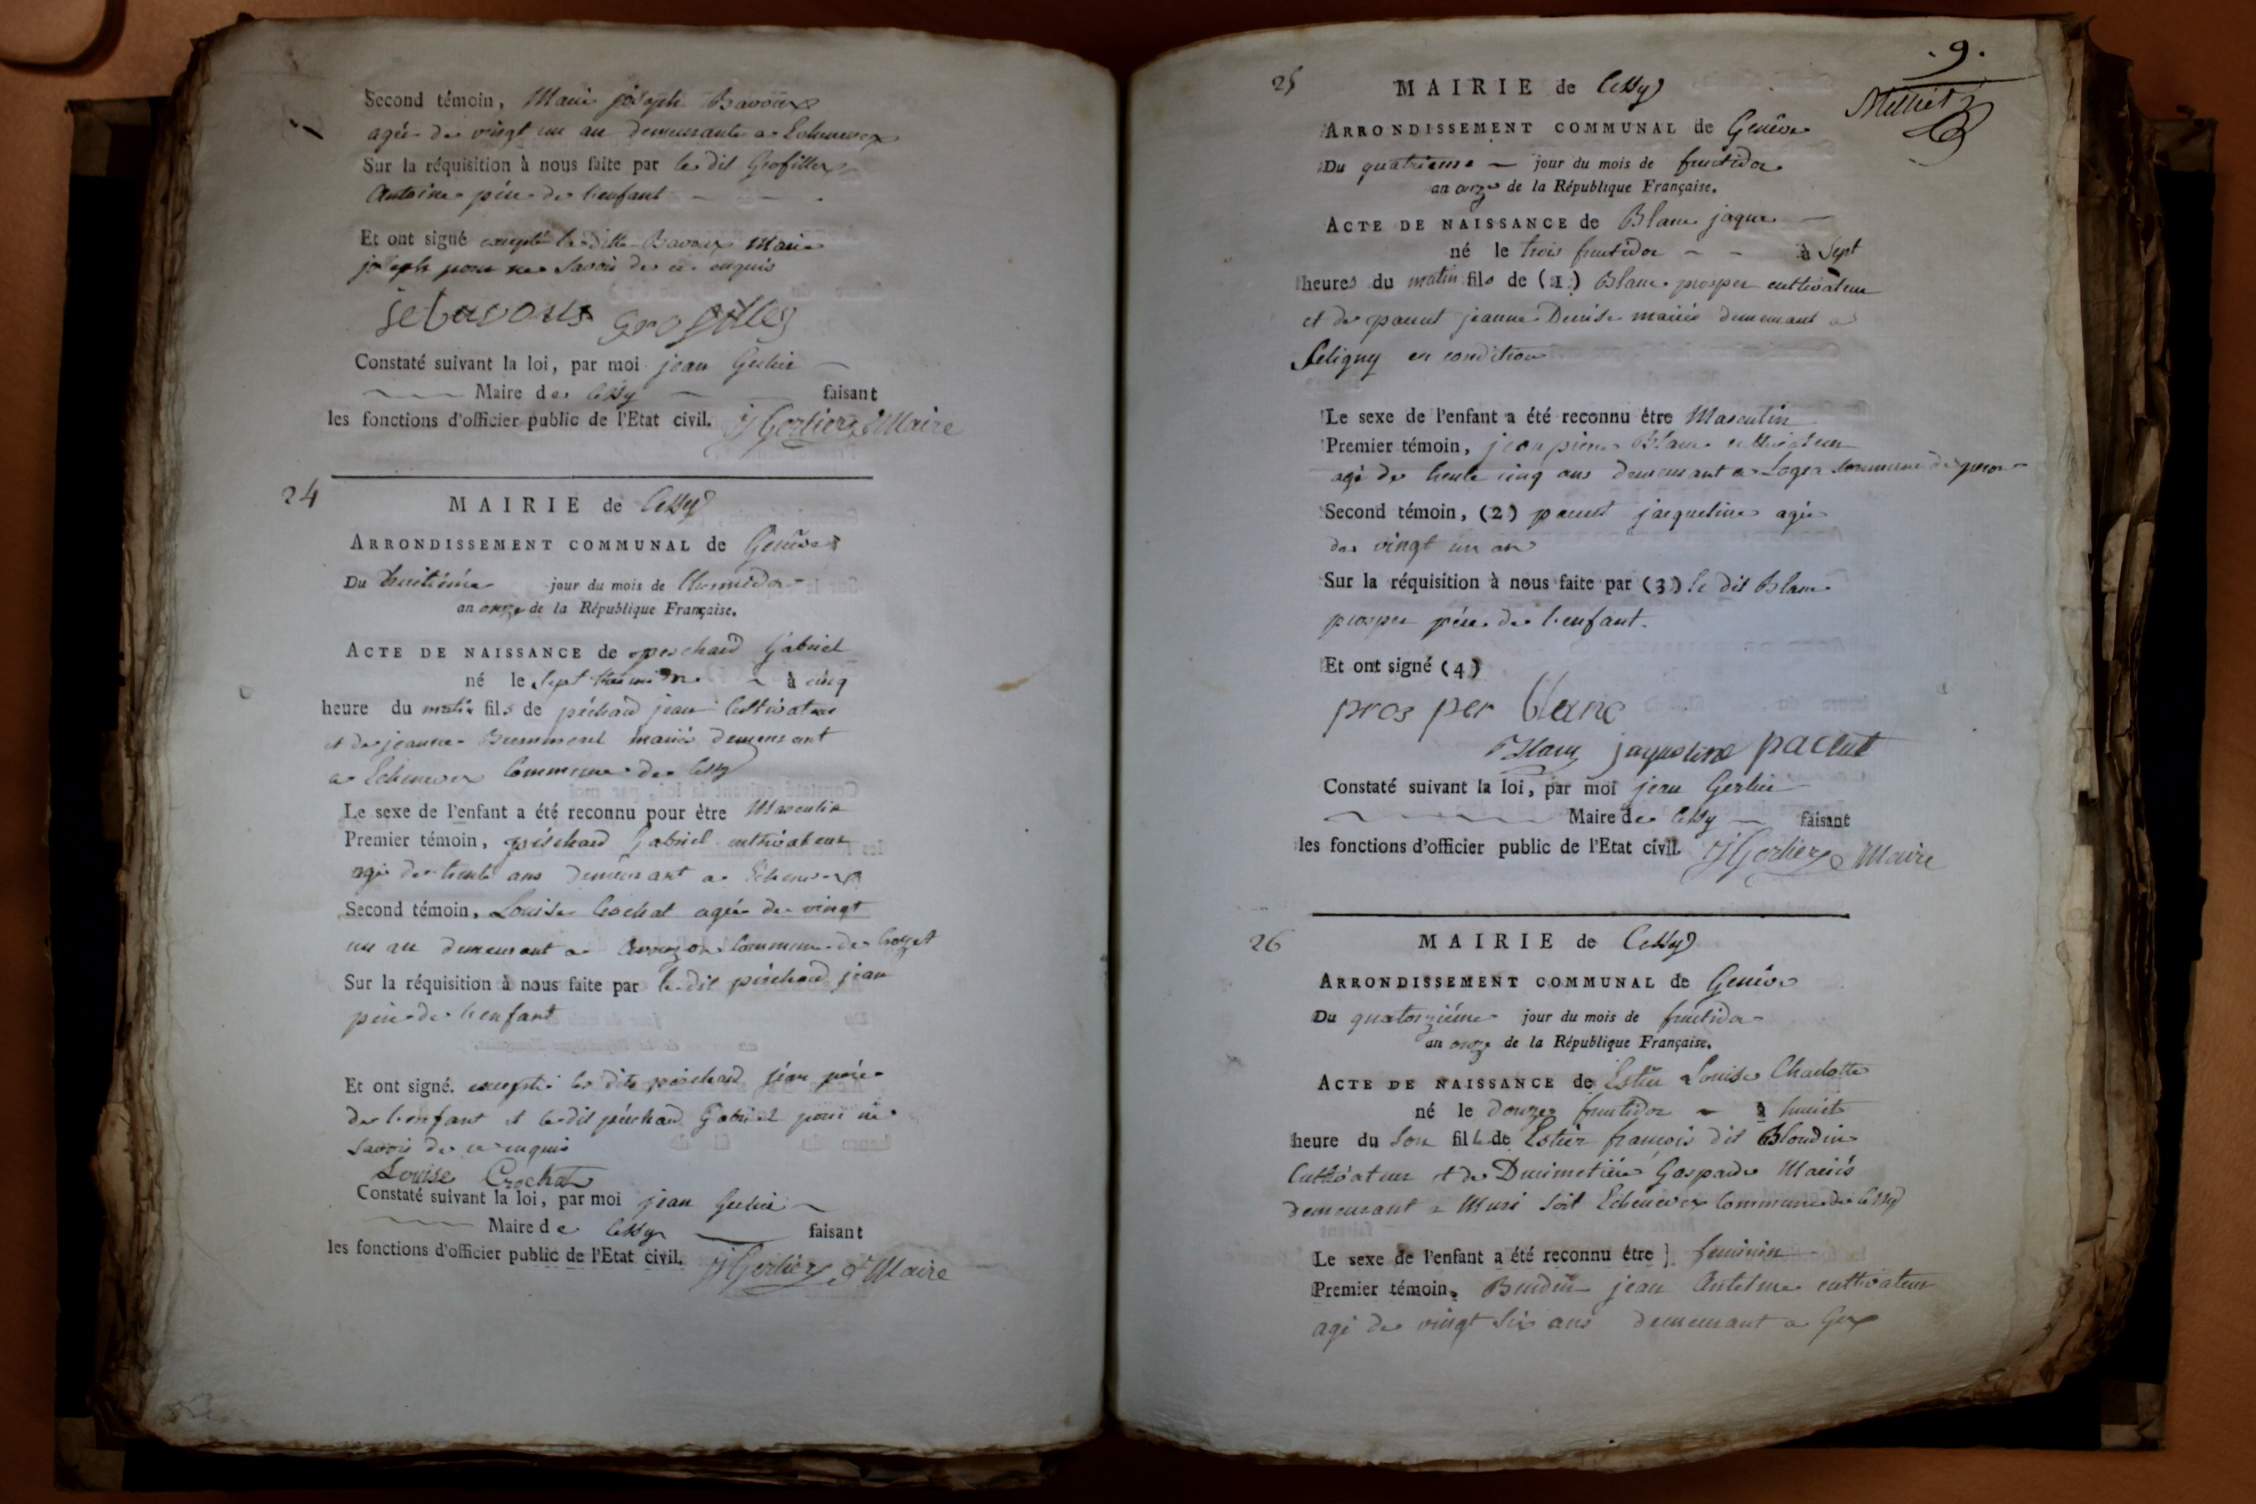 Second témoin, Marie joseph Bavoux
agée de vingt un an demeurante a Echenevex
Sur la réquisition à nous faite par le dit Grofilley
Antoine père de l'enfant
Et ont signé excepté la ditte Bavoux Marie
joseph pour ne savoir de ce enquis
jebavoux Grofilley
Constaté suivant la loi, par moi jean Gerlier
Maire de Cessy faisant
les fonctions d'officier public de l'Etat civil. jGerlier Maire
24
MAIRIE de Cessy
ARRONDISSEMENT COMMUNAL de Genêve
Du huitiéme jour du mois de thermidor
an onze de la République Française.
ACTE DE NAISSANCE de perchard Gabriel
né le sept thermidor à cinq
heure du matin fils de pérchard jean Cultivateur
et de jeanne mariés demeurant
a Echenevex Commune de Cessy
Le sexe de l'enfant a été reconnu pour être Masculin
Premier témoin, pérchard Gabriel cultivateur
agé de trente ans demeurant a Echenevex
Second témoin, Louise Crochat agée de vingt
un an demeurant a Commune de Crozet
Sur la réquisition à nous faite par le dit pérchard jean
père de l'enfant
Et ont signé. excepté les dits pérchard jean père
de l'enfant et le dit pérchard Gabriel pour ne
savoir de ce enquis
Louise Crochat
Constaté suivant la loi, par moi jean Gerlier
Maire de Cessy faisant
les fonctions d'officier public de l'Etat civil. jGerlier Maire
.9.
Milliet
25
MAIRIE de Cessy
ARRONDISSEMENT COMMUNAL de Genêve
Du quatrieme jour du mois de fructidor
an onze de la République Française.
ACTE DE NAISSANCE de Blanc jaque
né le trois fructidor à sept
heures du matin fils de (1) Blanc prosper cultivateur
et de pacut jeanne Denise mariés demeurant a
Seligny en condition
Le sexe de l'enfant a été reconnu être Masculin
Premier témoin, jean pierre Blanc cultivateur
agé de trente cinq ans demeurant a Loger commune de
Second témoin, (2) pacut jacqueline agée
de vingt un an
Sur la réquisition à nous faite par (3) le dit Blanc
prosper père de l'enfant.
Et ont signé (4)
pros per blanc
jaqueline pacut
Constaté suivant la loi, par moi jean Gerlier
Maire de Cessy faisant
les fonctions d'officier public de l'Etat civil. jGerlier Maire
26
MAIRIE de Cessy
ARRONDISSEMENT COMMUNAL de Genêve
Du quatorziéme jour du mois de fructidor
an onze de la République Française.
ACTE DE NAISSANCE de Estier Louise Charlotte
né le douze fructidor à huict
heure du soir fille de Estier françois dit Blondin
Cultivateur et de Dusimetiére Gasparde Mariés
demeurant a Muri soit Echenevex Commune de Cessy
Le sexe de l'enfant a été reconnu être féminin
Premier témoin, jean Antelme cultivateur
agé de vingt six ans demeurant a Gex